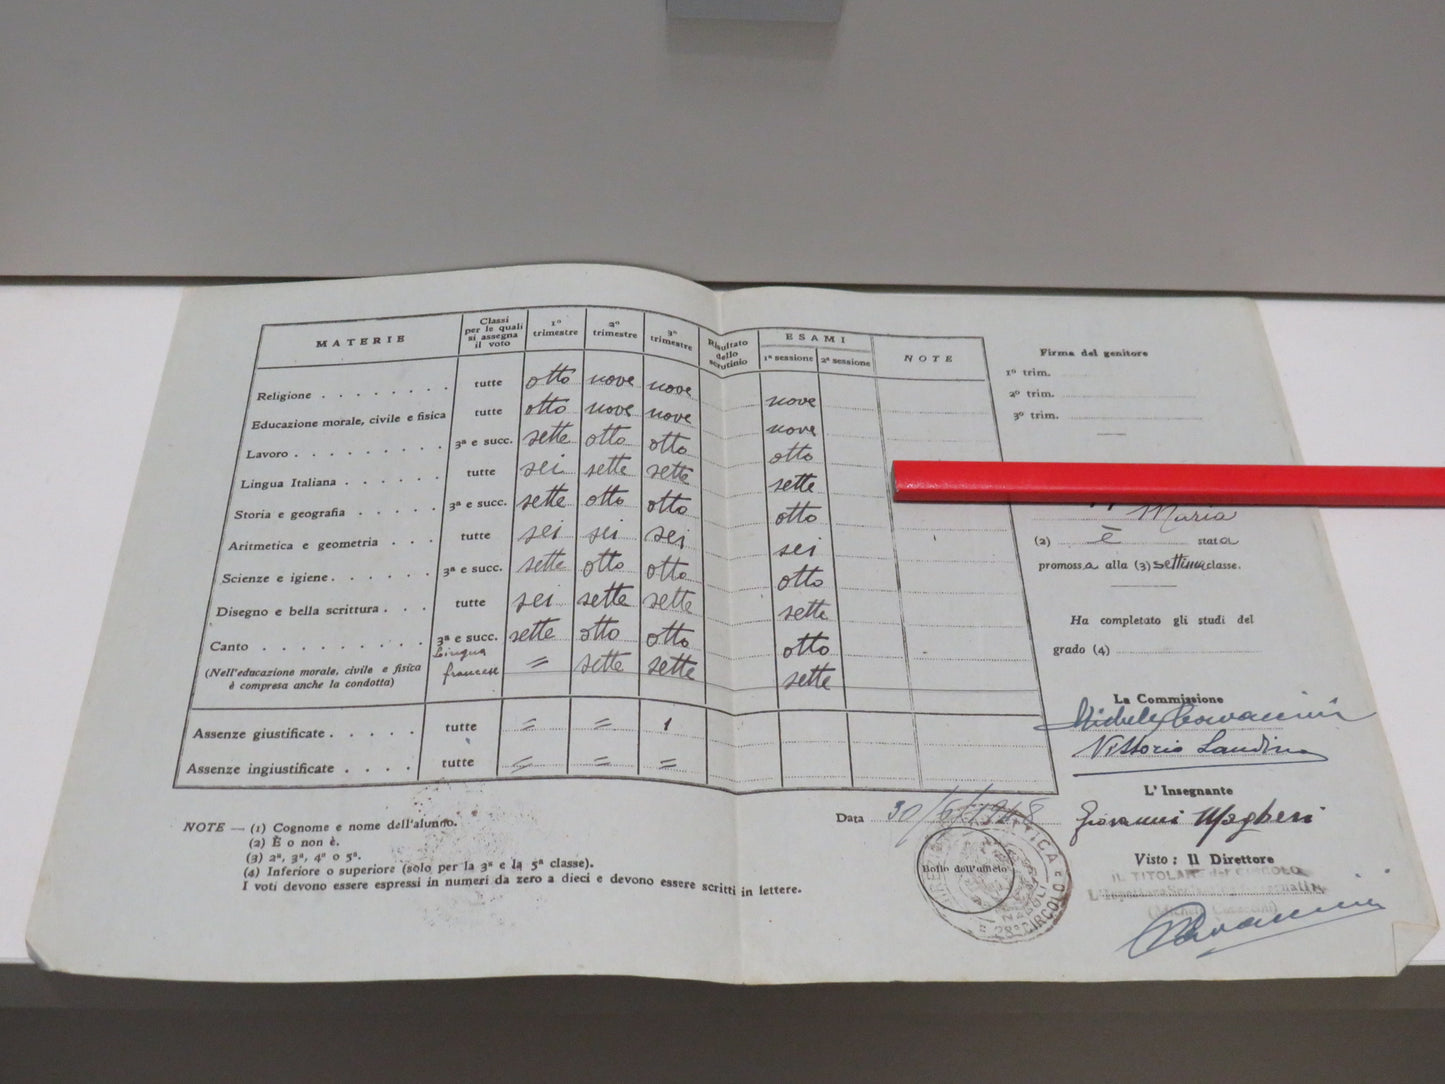 MATERIE Classi per le quali si assegna il voto 1º trimestre 2º trimestre 3º trimestre Risultato dello scrutinio ESAMI 1ª sessione 2ª sessione NOTE
Religione tutte otto nove nove nove
Educazione morale, civile e fisica tutte otto nove nove nove
Lavoro 3ª e succ. sette otto otto otto
Lingua Italiana tutte sei sette sette sette
Storia e geografia 3ª e succ. sette otto otto otto
Aritmetica e geometria tutte sei sei sei sei
Scienze e igiene 3ª e succ. sette otto otto otto
Disegno e bella scrittura tutte sei sette sette sette
Canto 3ª e succ. sette otto otto otto
(Nell'educazione morale, civile e fisica è compresa anche la condotta) Lingua francese = sette sette sette
Assenze giustificate tutte = = 1
Assenze ingiustificate tutte = = =
NOTE — (1) Cognome e nome dell'alunno.
(2) È o non è.
(3) 2ª, 3ª, 4ª o 5ª.
(4) Inferiore o superiore (solo per la 3ª e la 5ª classe).
I voti devono essere espressi in numeri da zero a dieci e devono essere scritti in lettere.
Firma del genitore
1º trim.
2º trim.
3º trim.
Maria
(2) è stata
promossa alla (3) settima classe.
Ha completato gli studi del
grado (4)
La Commissione
Vittorio Landino
L'Insegnante
Giovanni Magheri
Data
Visto: Il Direttore
IL TITOLARE del CIRCOLO
Bollo dell'ufficio
NAPOLI
28º CIRCOLO